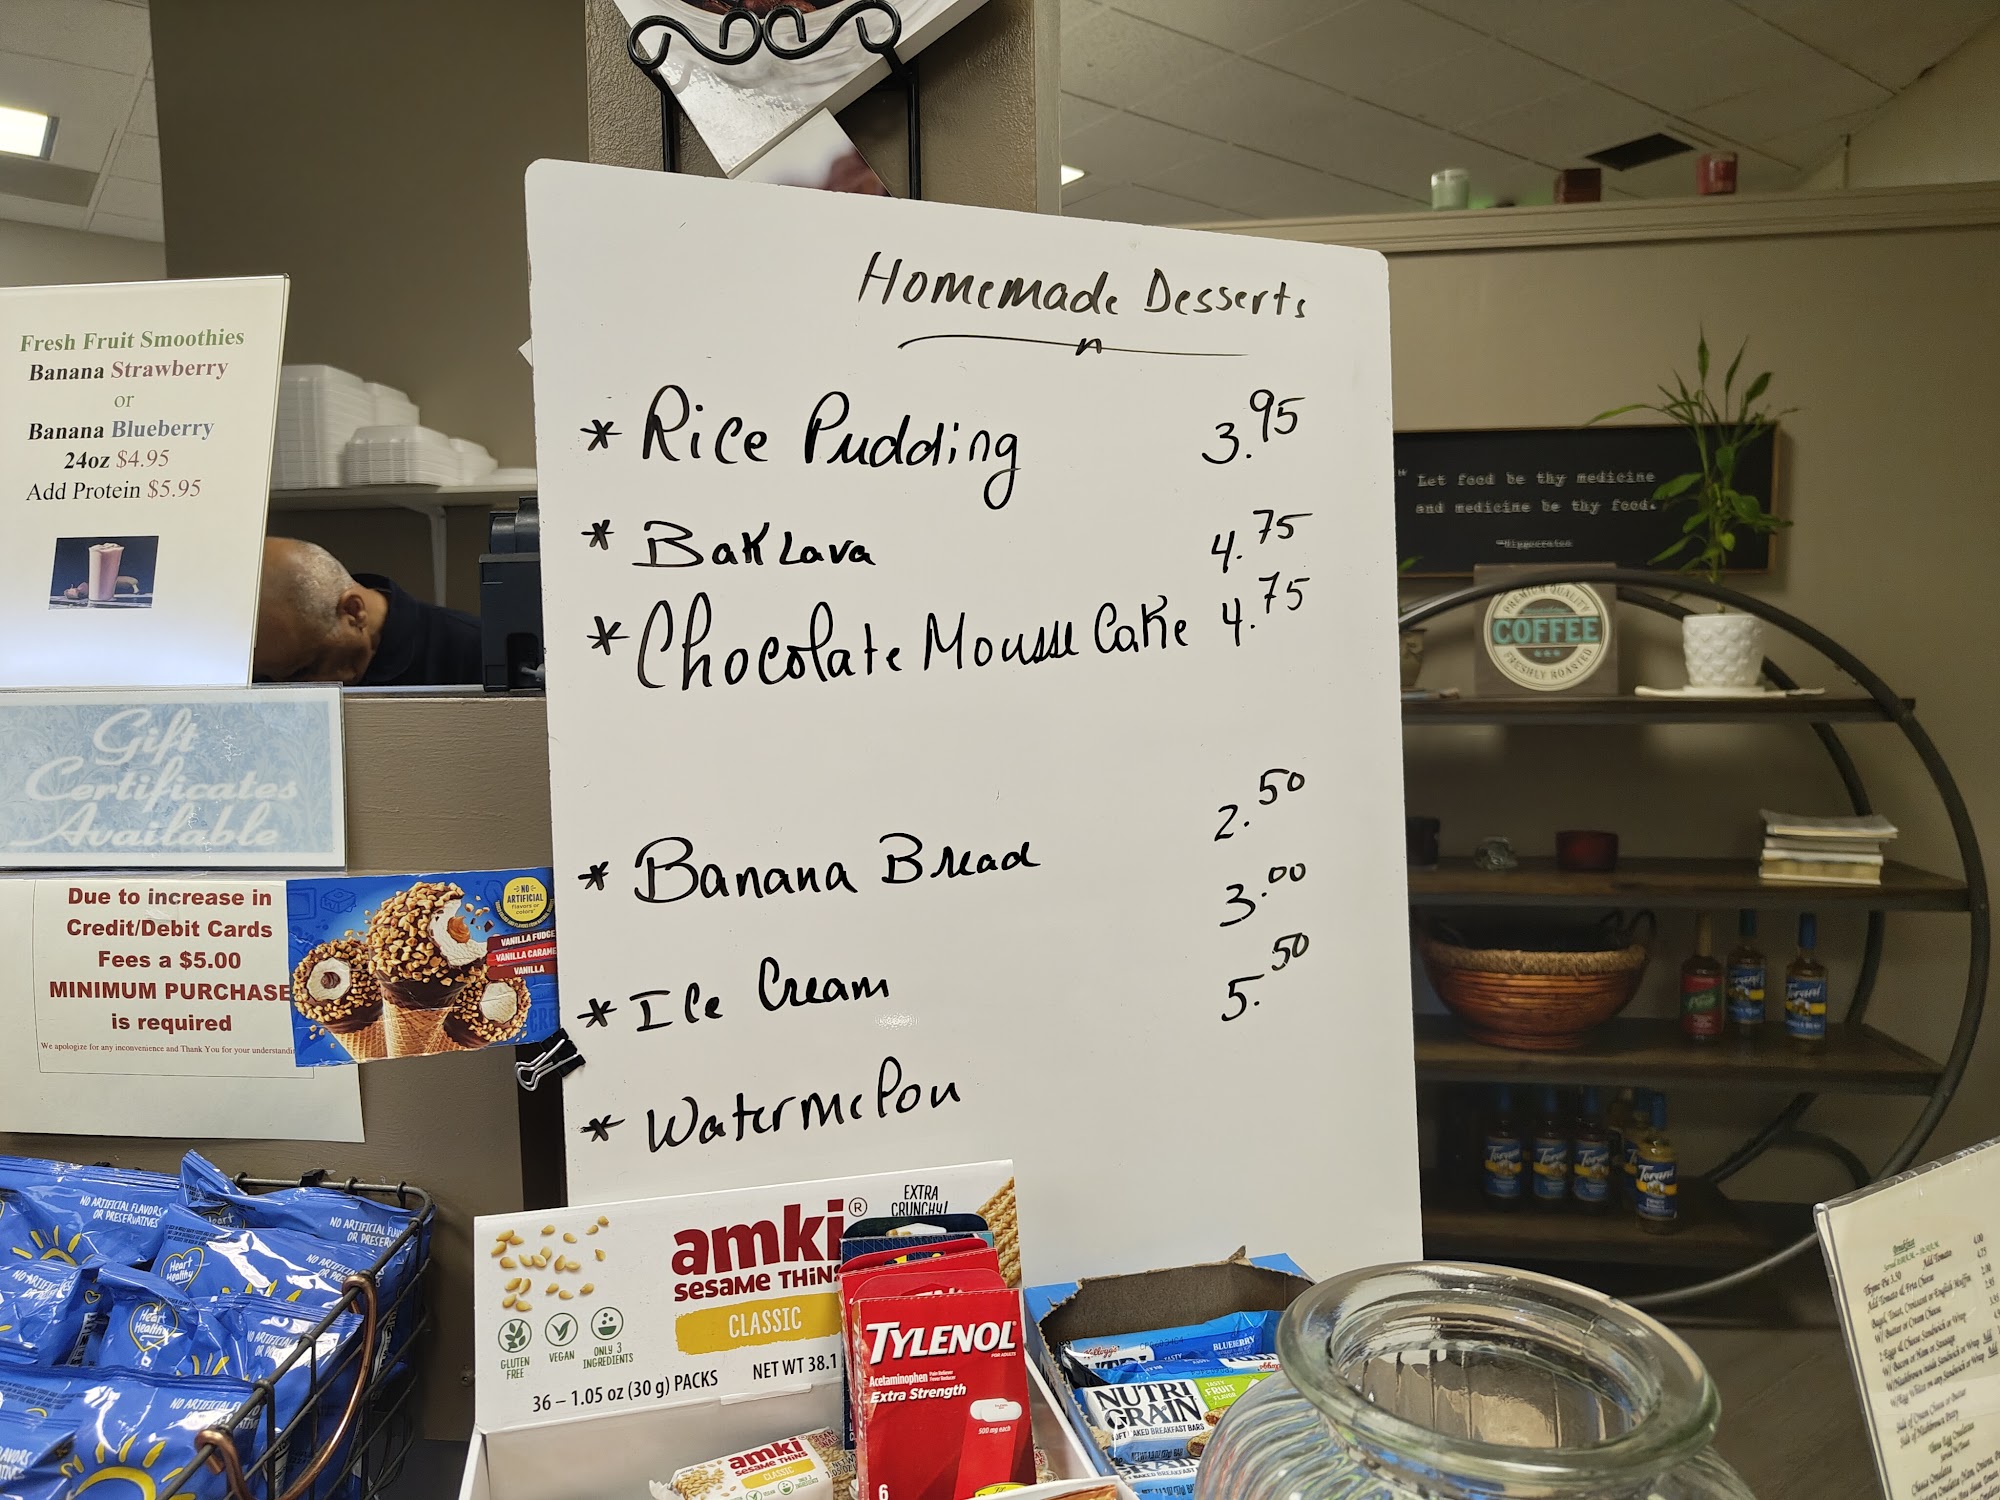 Homemade Desserts
* Rice Pudding 3.95
* Baklava 4.75
* Chocolate Mousse Cake 4.75
* Banana Bread 2.50
* Ice Cream 3.00
* Watermelon 5.50
Fresh Fruit Smoothies
Banana Strawberry
or
Banana Blueberry
24oz $4.95
Add Protein $5.95
Gift
Certificates
Available
Due to increase in
Credit/Debit Cards
Fees a $5.00
MINIMUM PURCHASE
is required
We apologize for any inconvenience and Thank You for your understandin
NO
ARTIFICIAL
flavors or
colors
VANILLA FUDGE
VANILLA CARAME
VANILLA
" Let food be thy medicine
and medicine be thy food.
~Hippocrates
PREMIUM QUALITY
COFFEE
FRESHLY ROASTED
Torani
Torani
Torani
Torani
Torani
Torani
NO ARTIFICIAL FLAVORS
OR PRESERVATIVES
Heart
Healthy
Heart
Healthy
amki®
SESAME THINS
CLASSIC
EXTRA
CRUNCHY!
GLUTEN
FREE
VEGAN
ONLY 3
INGREDIENTS
36 – 1.05 oz (30 g) PACKS
NET WT 38.1
amki
SESAME THINS
CLASSIC
TYLENOL
FOR ADULTS
Acetaminophen Pain Reliever
Fever Reducer
Extra Strength
500 mg each
6
Kellogg's
BLUEBERRY
NUTRI
GRAIN
TASTY
FRUIT
FLAVOR
SOFT BAKED BREAKFAST BARS
GRAIN
Breakfast
Add Tomato